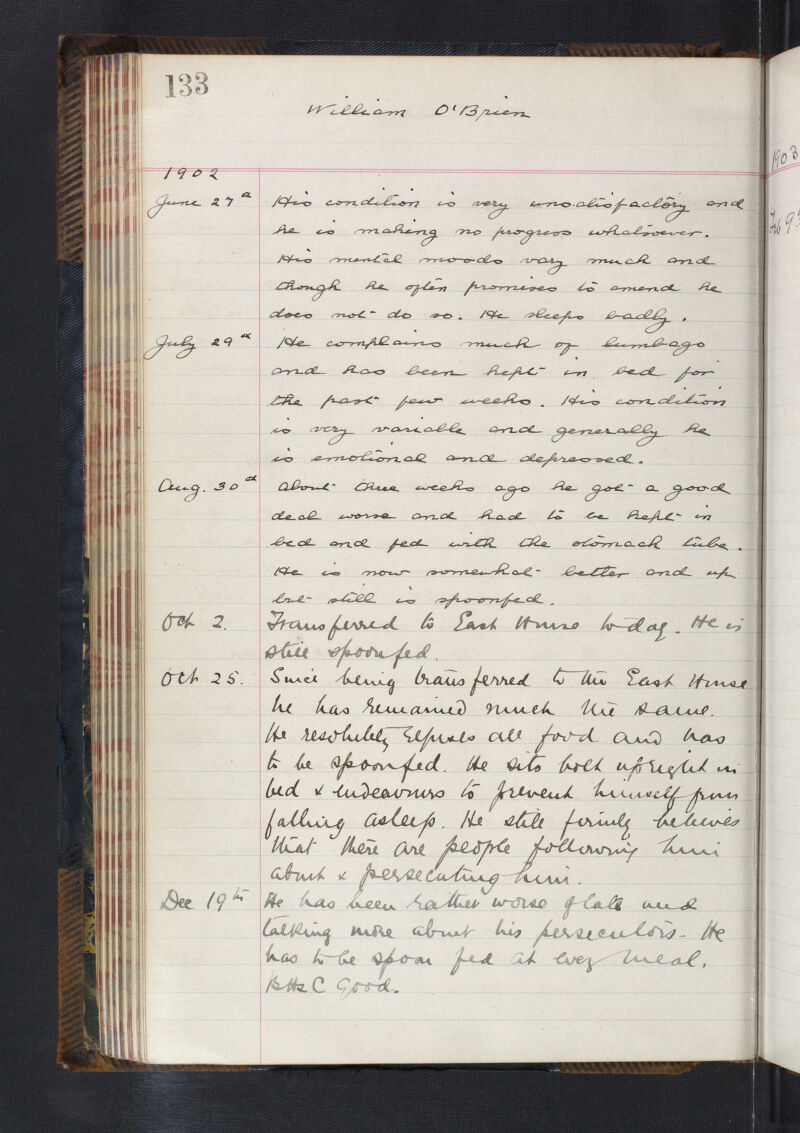 133
William O'Brien
1902
June 27th His condition is very unsatisfactory and
he is making no progress whatsoever.
His mental moods vary much and
though he often promises to amend he
does not do so. He sleeps badly.
July 29th He complains much of lumbago
and has been kept in bed for
the past few weeks. His condition
is very variable and generally he
is emotional and depressed.
Aug. 30th About three weeks ago he got a good
deal worse and had to be kept in
bed and fed with the stomach tube.
He is now somewhat better and up
but still is spoonfed.
Oct 2. Transferred to East House to-day. He is
still spoonfed.
Oct 25. Since being transferred to the East House
he has remained much the same.
He resolutely refuses all food and has
to be spoonfed. He sits bolt upright in
bed & endeavours to prevent himself from
falling asleep. He still firmly believes
that there are people following him
about & persecuting him.
Dec 19th He has been rather worse of late and
talking more about his persecutors. He
has to be spoon fed at every meal.
B H & C Good.
1903
Feb 9th